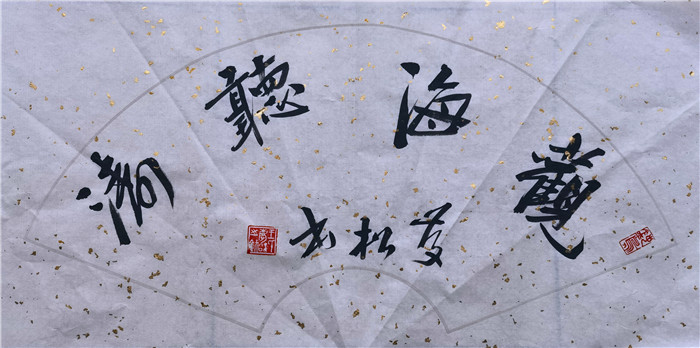 觀海聽濤
松书